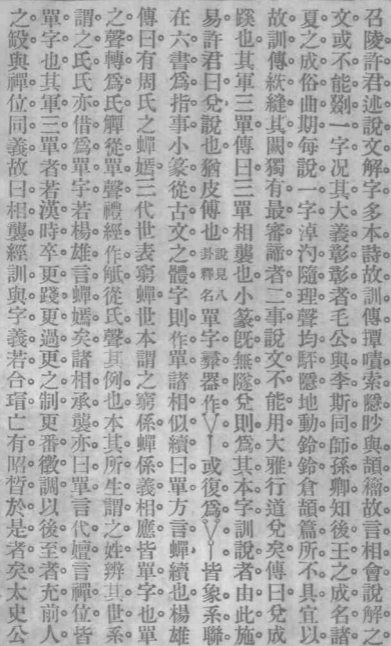 召陵許君述說文解字多本詩故訓傳撢嘖索隱眇與頡籀故言相會說解之
文或不能剟一字况其大義彰彰者毛公與李斯同師孫卿知後王之成名諸
夏之成俗曲期每說一字淖汋隨理聲均軯隱地動鈴鈴倉頡篇所不具宜以
故訓傳紩縫其闕獨有最審諦者二事說文不能用大雅行道兌矣傳曰兌成
蹊也其軍三單傳曰三單相襲也小篆旣無隧兌則爲其本字訓說者由此施
易許君曰兌說也猶皮傅也說見八卦釋名單字彝器作或復爲皆象系聯
在六書爲指事小篆從古文之體字則作單諸相似續曰單方言蟬續也楊雄
傳曰有周氏之蟬嫣三代世表窮蟬世本謂之窮係蟬係義相應皆單字也單
之聲轉爲氏觶從單聲禮經作觗從氏聲其例也本其所生謂之姓辨其世系
謂之氏氏亦借爲單字若楊雄言蟬嫣矣諸相承襲亦曰單言代嬗言禪位皆
單字也其軍三單者若漢時卒更踐更過更之制更番徵調以後至者充前人
之缺與禪位同義故曰相襲經訓與字義若合瑁亡有昭晳於是者矣太史公